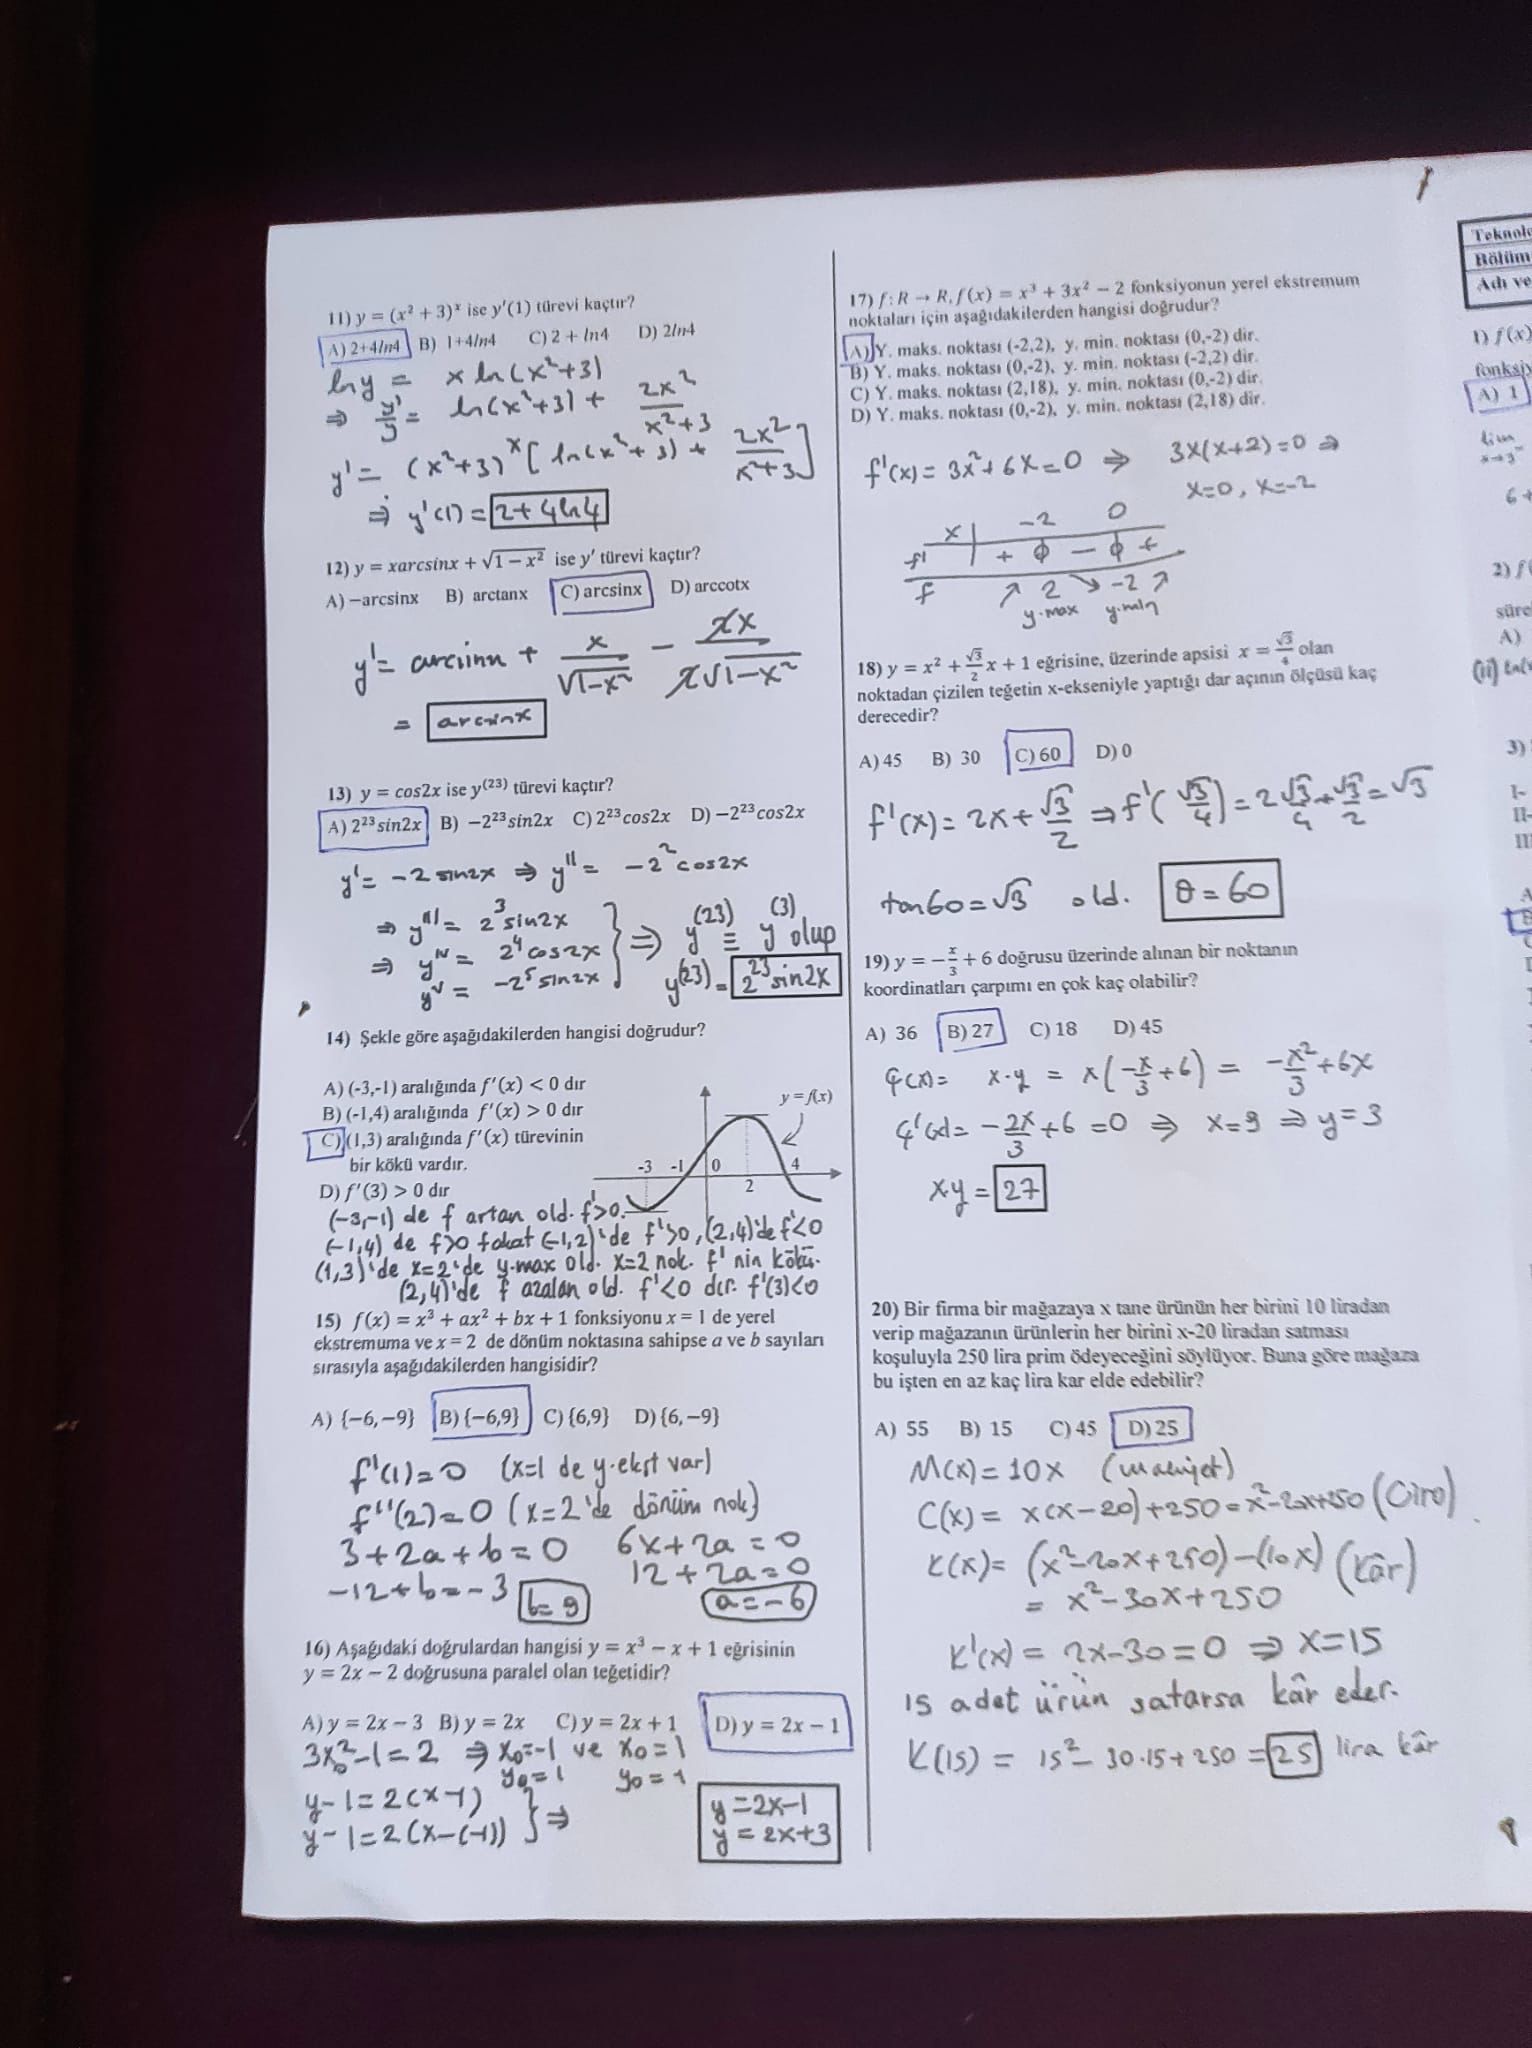 11) y = (x² + 3)ˣ ise y'(1) türevi kaçtır?
A) 2+4ln4 B) 1+4ln4 C) 2 + ln4 D) 2ln4
lny = x ln(x²+3)
⇒ y'/y = ln(x²+3) + 2x²/(x²+3)
y' = (x²+3)ˣ [ln(x²+3) + 2x²/(x²+3)]
⇒ y'(1) = 2+4ln4
12) y = xarcsinx + √(1 − x²) ise y' türevi kaçtır?
A) −arcsinx B) arctanx C) arcsinx D) arccotx
y' = arcsinx + x/√(1-x²) − 2x/(2√(1-x²))
= arcsinx
13) y = cos2x ise y⁽²³⁾ türevi kaçtır?
A) 2²³sin2x B) −2²³sin2x C) 2²³cos2x D) −2²³cos2x
y' = -2 sin2x ⇒ y'' = -2²cos2x
⇒ y''' = 2³sin2x
⇒ yᴵⱽ = 2⁴cos2x
yⱽ = -2⁵sin2x
} ⇒ y⁽²³⁾ ≡ y⁽³⁾ olup
y⁽²³⁾ = 2²³sin2x
14) Şekle göre aşağıdakilerden hangisi doğrudur?
A) (-3,-1) aralığında f'(x) < 0 dır
B) (-1,4) aralığında f'(x) > 0 dır
C) (1,3) aralığında f'(x) türevinin
bir kökü vardır.
D) f'(3) > 0 dır
y = f(x)
-3 -1 0 2 4
(-3,-1) de f artan old. f'>0.
(-1,4) de f>0 fakat (-1,2)'de f'>0, (2,4)'de f'<0
(1,3)'de x=2'de y.max old. x=2 nok. f' nin kökü.
(2,4)'de f azalan old. f'<0 dır. f'(3)<0
15) f(x) = x³ + ax² + bx + 1 fonksiyonu x = 1 de yerel
ekstremuma ve x = 2 de dönüm noktasına sahipse a ve b sayıları
sırasıyla aşağıdakilerden hangisidir?
A) {−6,−9} B) {−6,9} C) {6,9} D) {6,−9}
f'(1)=0 (x=1 de y.ekst var)
f''(2)=0 (x=2'de dönüm nok)
3+2a+b=0 6x+2a=0
-12+b=-3 12+2a=0
b=9 a=-6
16) Aşağıdaki doğrulardan hangisi y = x³ − x + 1 eğrisinin
y = 2x − 2 doğrusuna paralel olan teğetidir?
A) y = 2x − 3 B) y = 2x C) y = 2x + 1 D) y = 2x − 1
3x₀²-1=2 ⇒ x₀=-1 ve x₀=1
y₀=1 y₀=1
y-1=2(x-1)
y-1=2(x-(-1)) } ⇒
y=2x-1
y=2x+3
17) f: R → R, f(x) = x³ + 3x² − 2 fonksiyonun yerel ekstremum
noktaları için aşağıdakilerden hangisi doğrudur?
A) Y. maks. noktası (-2,2), y. min. noktası (0,-2) dir.
B) Y. maks. noktası (0,-2), y. min. noktası (-2,2) dir.
C) Y. maks. noktası (2,18), y. min. noktası (0,-2) dir.
D) Y. maks. noktası (0,-2), y. min. noktası (2,18) dir.
f'(x) = 3x²+6x=0 ⇒ 3x(x+2)=0 ⇒
x=0, x=-2
x -2 0
f' + 0 − 0 +
f ↗ 2 ↘ -2 ↗
y.max y.min
18) y = x² + √3/2 x + 1 eğrisine, üzerinde apsisi x = √3/4 olan
noktadan çizilen teğetin x-ekseniyle yaptığı dar açının ölçüsü kaç
derecedir?
A) 45 B) 30 C) 60 D) 0
f'(x) = 2x+√3/2 ⇒ f'(√3/4) = 2√3/4+√3/2=√3
tan60=√3 old. θ=60
19) y = −x/3 + 6 doğrusu üzerinde alınan bir noktanın
koordinatları çarpımı en çok kaç olabilir?
A) 36 B) 27 C) 18 D) 45
Ç(x)= x.y = x(-x/3+6) = -x²/3+6x
Ç'(x)= -2x/3+6=0 ⇒ x=9 ⇒ y=3
x.y = 27
20) Bir firma bir mağazaya x tane ürünün her birini 10 liradan
verip mağazanın ürünlerin her birini x-20 liradan satması
koşuluyla 250 lira prim ödeyeceğini söylüyor. Buna göre mağaza
bu işten en az kaç lira kar elde edebilir?
A) 55 B) 15 C) 45 D) 25
M(x)=10x (maliyet)
C(x)= x(x-20)+250=x²-20x+250 (Ciro)
K(x)= (x²-20x+250)-(10x) (Kâr)
= x²-30x+250
K'(x)= 2x-30=0 ⇒ x=15
15 adet ürün satarsa kâr eder.
K(15) = 15²-30.15+250=25 lira kâr
Bölüm
Adı ve
1) f(x)
A) 1
lim
x→3⁻
6+
2) f
süre
A)
(ii)
3)
I-
II-
III